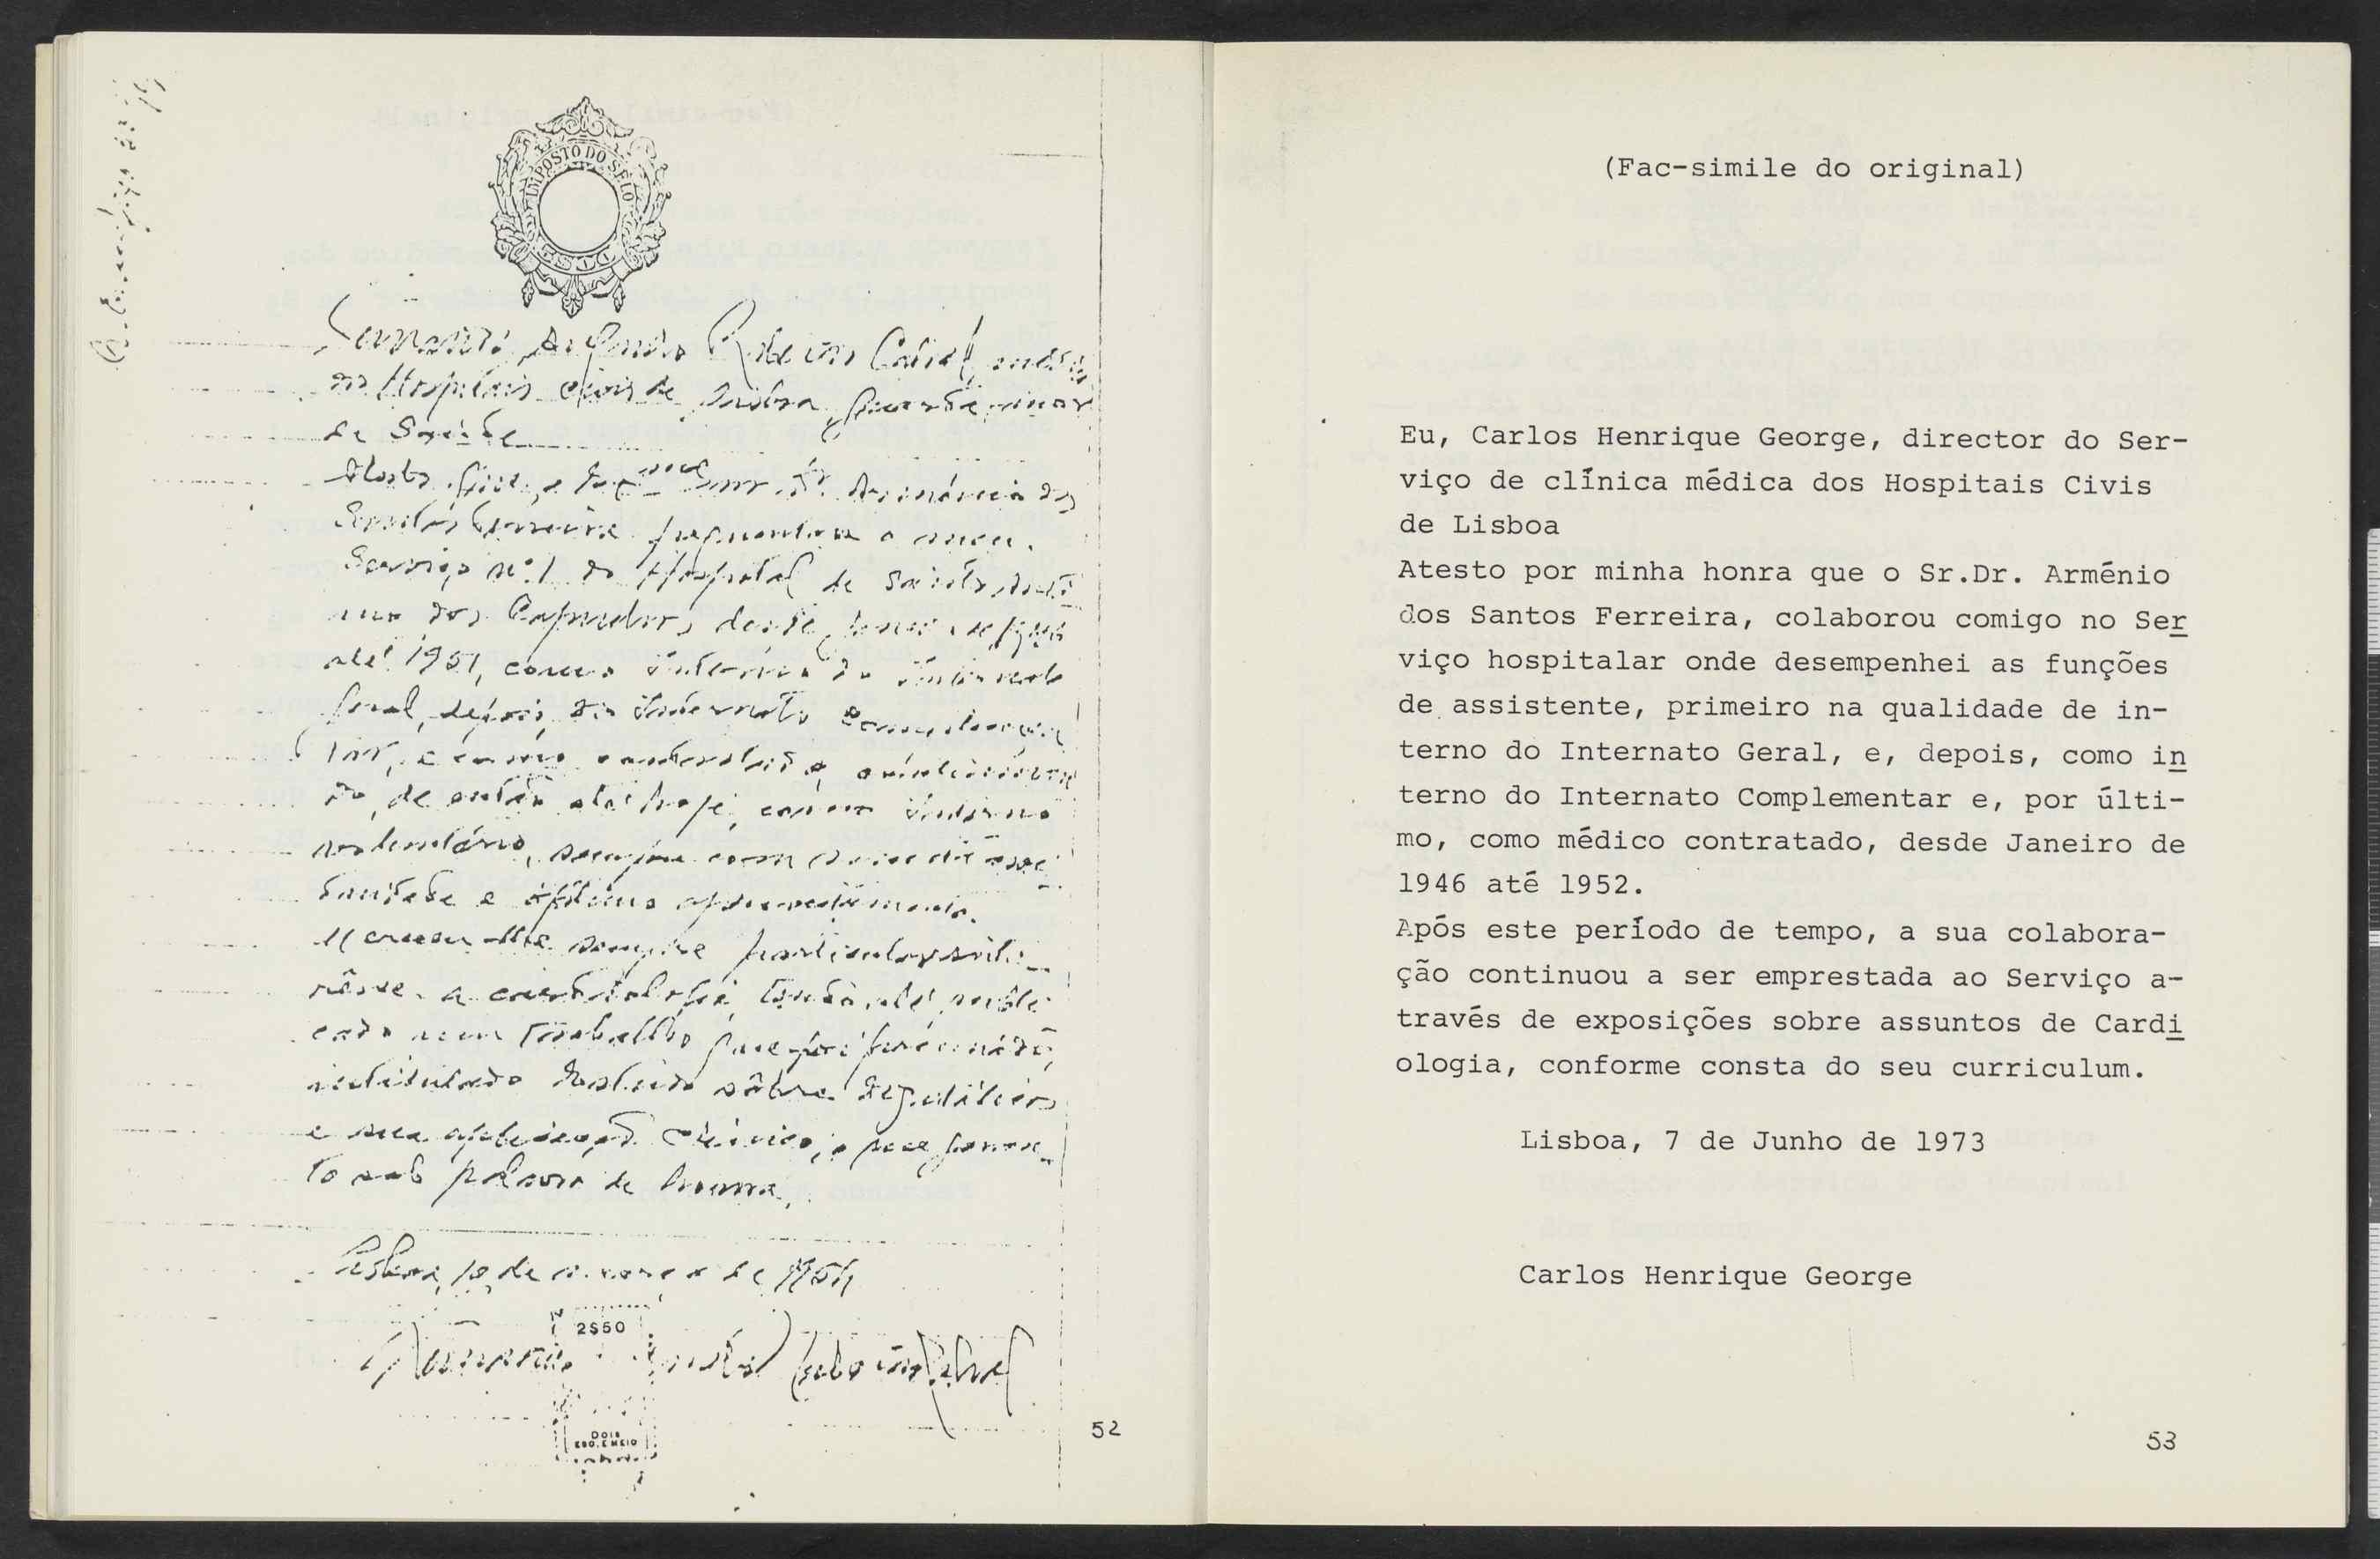 IMPOSTO DO SELO
ESC.
Fernando Augusto Ribeiro Cabral, médico
dos Hospitais civis de Lisboa,
de Saúde
Atesto que o Ex.mo Snr. Dr. Arménio dos
Santos Ferreira frequentou o meu
Serviço nº 1 do Hospital de Santo Antó-
nio dos Capuchos desde
até 1951, como interno do internato
geral, depois do internato complemen-
tar, e como contratado
do, de então até hoje, como interno
voluntário, sempre com
e óptimo aproveitamento.
Mereceu-lhe sempre particular inte-
rêsse a cardiologia, tendo até publi-
cado um trabalho que foi premiado,
intitulado Estudo sôbre Digitálicos
e sua aplicação clínica, o que
to sob palavra de honra.
Lisboa, 10 de março de 1954
2$50
Fernando Augusto Ribeiro Cabral
DOIS
ESC. E MEIO
52
(Fac-simile do original)
Eu, Carlos Henrique George, director do Ser-
viço de clínica médica dos Hospitais Civis
de Lisboa
Atesto por minha honra que o Sr.Dr. Arménio
dos Santos Ferreira, colaborou comigo no Ser
viço hospitalar onde desempenhei as funções
de assistente, primeiro na qualidade de in-
terno do Internato Geral, e, depois, como in
terno do Internato Complementar e, por últi-
mo, como médico contratado, desde Janeiro de
1946 até 1952.
Após este período de tempo, a sua colabora-
ção continuou a ser emprestada ao Serviço a-
través de exposições sobre assuntos de Cardi
ologia, conforme consta do seu curriculum.
Lisboa, 7 de Junho de 1973
Carlos Henrique George
53